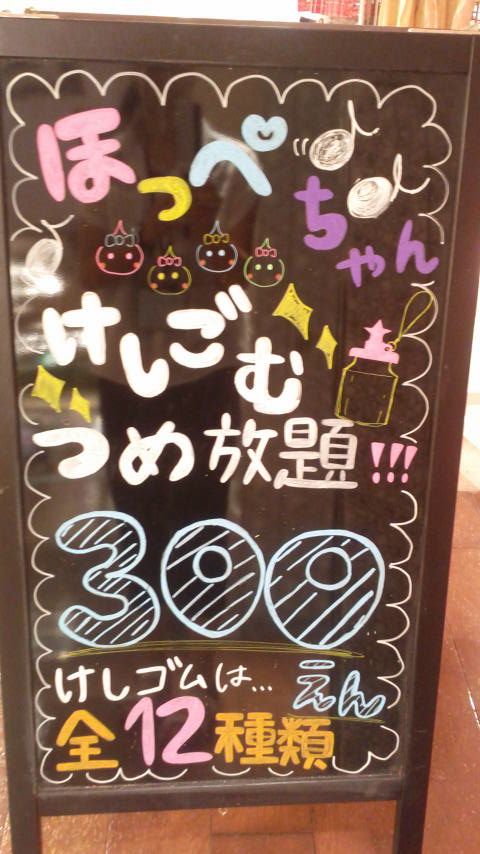 ほっぺちゃん
けしごむ
つめ放題!!!
300
えん
けしゴムは...
全12種類